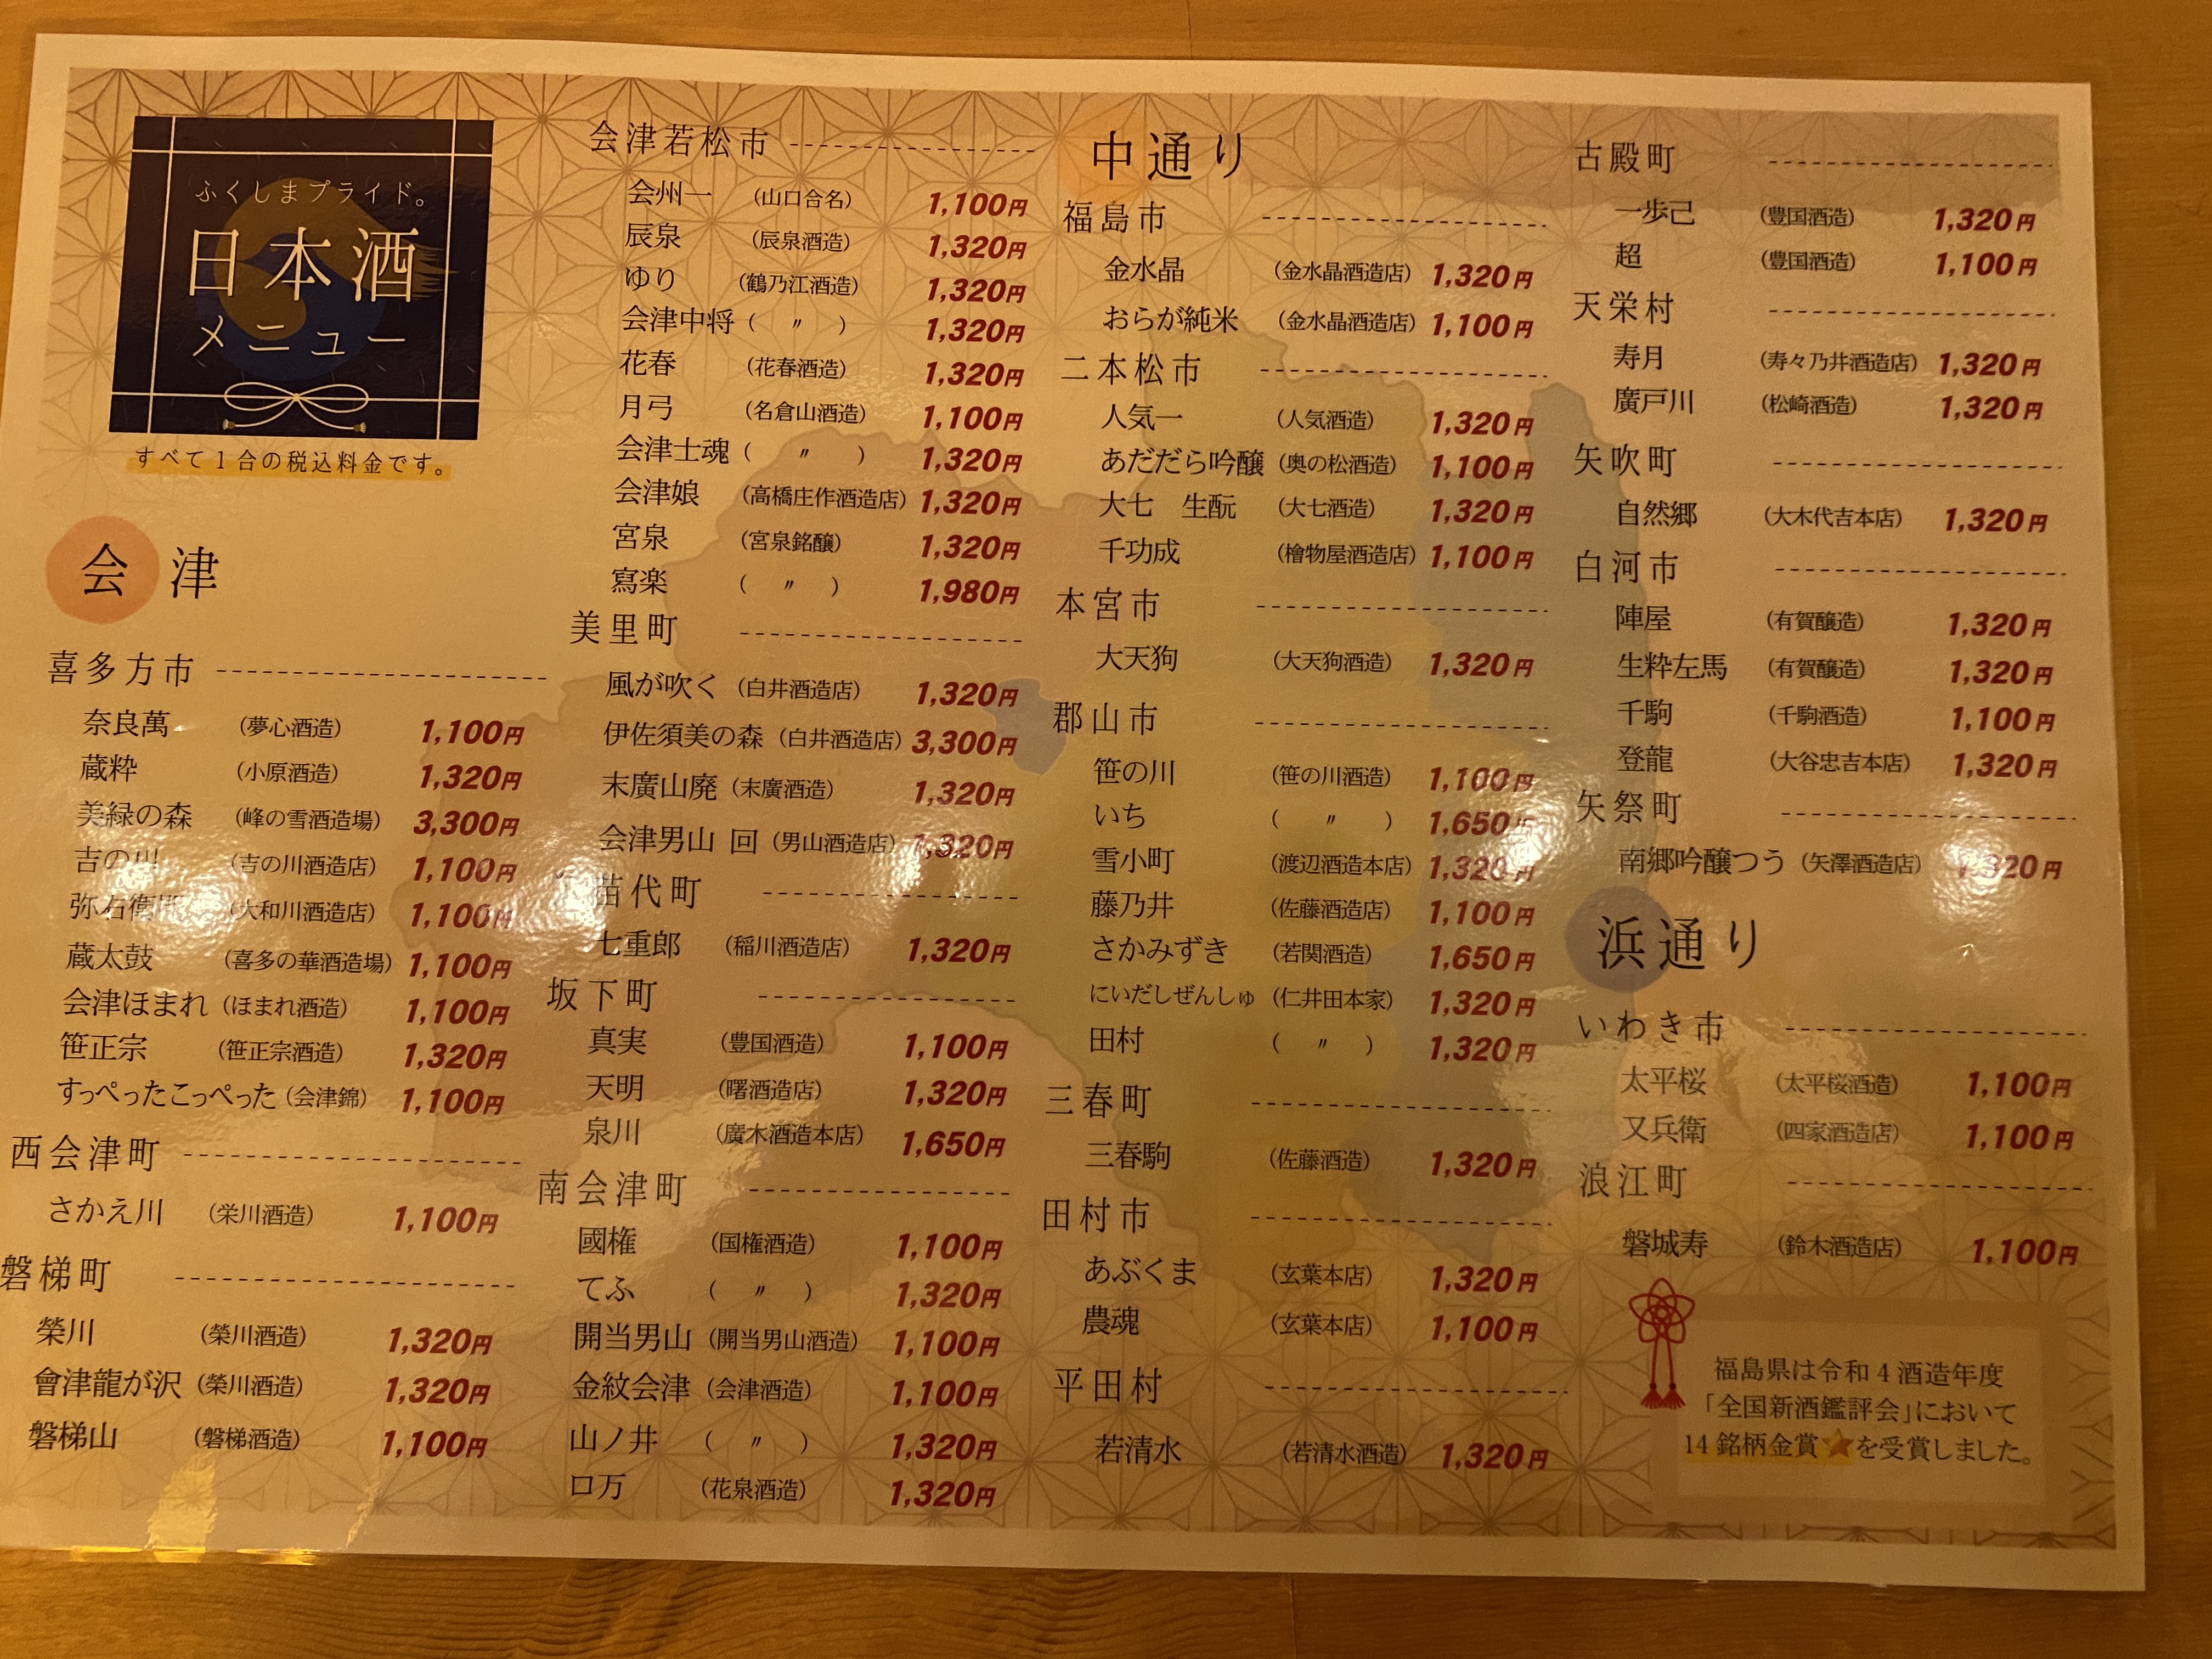 ふくしまプライド。
日本酒
メニュー
すべて1合の税込料金です。
会津
喜多方市
奈良萬 (夢心酒造) 1,100円
蔵粋 (小原酒造) 1,320円
美緑の森 (峰の雪酒造場) 3,300円
吉の川 (吉の川酒造店) 1,100円
弥右衛門 (大和川酒造店) 1,100円
蔵太鼓 (喜多の華酒造場) 1,100円
会津ほまれ (ほまれ酒造) 1,100円
笹正宗 (笹正宗酒造) 1,320円
すっぺったこっぺった (会津錦) 1,100円
西会津町
さかえ川 (栄川酒造) 1,100円
磐梯町
榮川 (榮川酒造) 1,320円
會津龍が沢 (榮川酒造) 1,320円
磐梯山 (磐梯酒造) 1,100円
会津若松市
会州一 (山口合名) 1,100円
辰泉 (辰泉酒造) 1,320円
ゆり (鶴乃江酒造) 1,320円
会津中将 ( 〃 ) 1,320円
花春 (花春酒造) 1,320円
月弓 (名倉山酒造) 1,100円
会津士魂 ( 〃 ) 1,320円
会津娘 (高橋庄作酒造店) 1,320円
宮泉 (宮泉銘醸) 1,320円
寫楽 ( 〃 ) 1,980円
美里町
風が吹く (白井酒造店) 1,320円
伊佐須美の森 (白井酒造店) 3,300円
末廣山廃 (末廣酒造) 1,320円
会津男山 回 (男山酒造店) 1,320円
苗代町
七重郎 (稲川酒造店) 1,320円
坂下町
真実 (豊国酒造) 1,100円
天明 (曙酒造店) 1,320円
泉川 (廣木酒造本店) 1,650円
南会津町
國権 (国権酒造) 1,100円
てふ ( 〃 ) 1,320円
開当男山 (開当男山酒造) 1,100円
金紋会津 (会津酒造) 1,100円
山ノ井 ( 〃 ) 1,320円
口万 (花泉酒造) 1,320円
中通り
福島市
金水晶 (金水晶酒造店) 1,320円
おらが純米 (金水晶酒造店) 1,100円
二本松市
人気一 (人気酒造) 1,320円
あだたら吟醸 (奥の松酒造) 1,100円
大七 生酛 (大七酒造) 1,320円
千功成 (檜物屋酒造店) 1,100円
本宮市
大天狗 (大天狗酒造) 1,320円
郡山市
笹の川 (笹の川酒造) 1,100円
いち ( 〃 ) 1,650円
雪小町 (渡辺酒造本店) 1,320円
藤乃井 (佐藤酒造店) 1,100円
さかみずき (若関酒造) 1,650円
にいだしぜんしゅ (仁井田本家) 1,320円
田村 ( 〃 ) 1,320円
三春町
三春駒 (佐藤酒造) 1,320円
田村市
あぶくま (玄葉本店) 1,320円
農魂 (玄葉本店) 1,100円
平田村
若清水 (若清水酒造) 1,320円
古殿町
一歩己 (豊国酒造) 1,320円
超 (豊国酒造) 1,100円
天栄村
寿月 (寿々乃井酒造店) 1,320円
廣戸川 (松崎酒造) 1,320円
矢吹町
自然郷 (大木代吉本店) 1,320円
白河市
陣屋 (有賀醸造) 1,320円
生粋左馬 (有賀醸造) 1,320円
千駒 (千駒酒造) 1,100円
登龍 (大谷忠吉本店) 1,320円
矢祭町
南郷吟醸つう (矢澤酒造店) 1,320円
浜通り
いわき市
太平桜 (太平桜酒造) 1,100円
又兵衛 (四家酒造店) 1,100円
浪江町
磐城寿 (鈴木酒造店) 1,100円
福島県は令和4酒造年度
「全国新酒鑑評会」において
14銘柄金賞⭐を受賞しました。